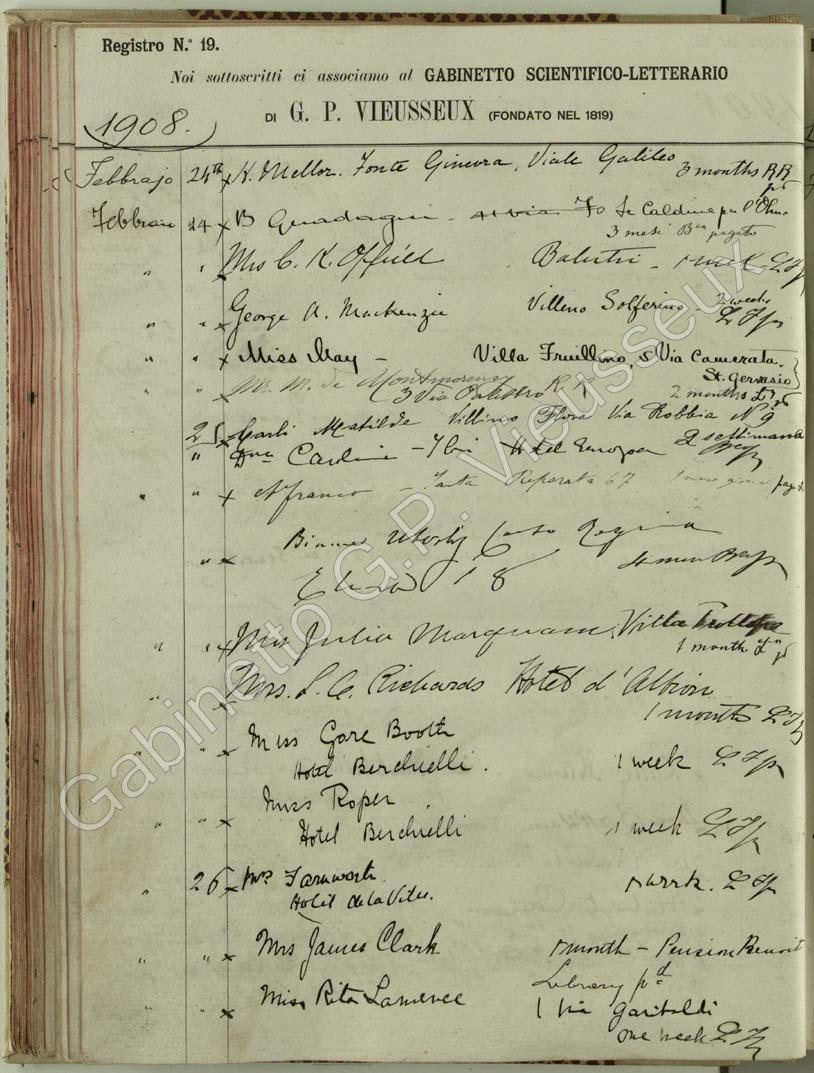 Registro N.º 19.
Noi sottoscritti ci associamo al GABINETTO SCIENTIFICO-LETTERARIO
DI G. P. VIEUSSEUX (FONDATO NEL 1819)
1908.
Febbrajo 24th x H. Mellor. Fonte Ginevra, Viale Galileo 3 months RR
pd
Febbraio 24 x B Guadagni - 70 Le Caldine per l'Olmo
3 mesi pagato
" " x Mrs C. K. Offield Balestri - 1 week
" " x George A. Mackenzie Villino Solferino - 2 weeks
" " x Miss May - Villa Fruillino, 5 Via Camerata.
St. Gervasio
" " Mr. M. de Montmorency
3 Via Palestro R. R 2 months
25 x Carli Matilde Villino Flora Via Robbia No 9
" Carolini - Hotel Europa 2 settimane
" " x A Franco - Santa Reparata 67 1 mese
" x Regina
18
" " x Mrs Julia Marquam. Villa Trollope
1 month pd
" x Mrs. L. C. Richards Hotel d'Albion
1 month
" " x Miss Gore Booth
Hotel Berchielli. 1 week
" " x Miss Roper
Hotel Berchielli 1 week
" 26 x Mrs Farnworth
Hotel de la Ville. 1 week.
" " x Mrs James Clark 1 month - Pension Benoit
Library pd
" " x Miss Rita Lawrence 1 Via Garibaldi
one week
Gabinetto G.P. Vieusseux